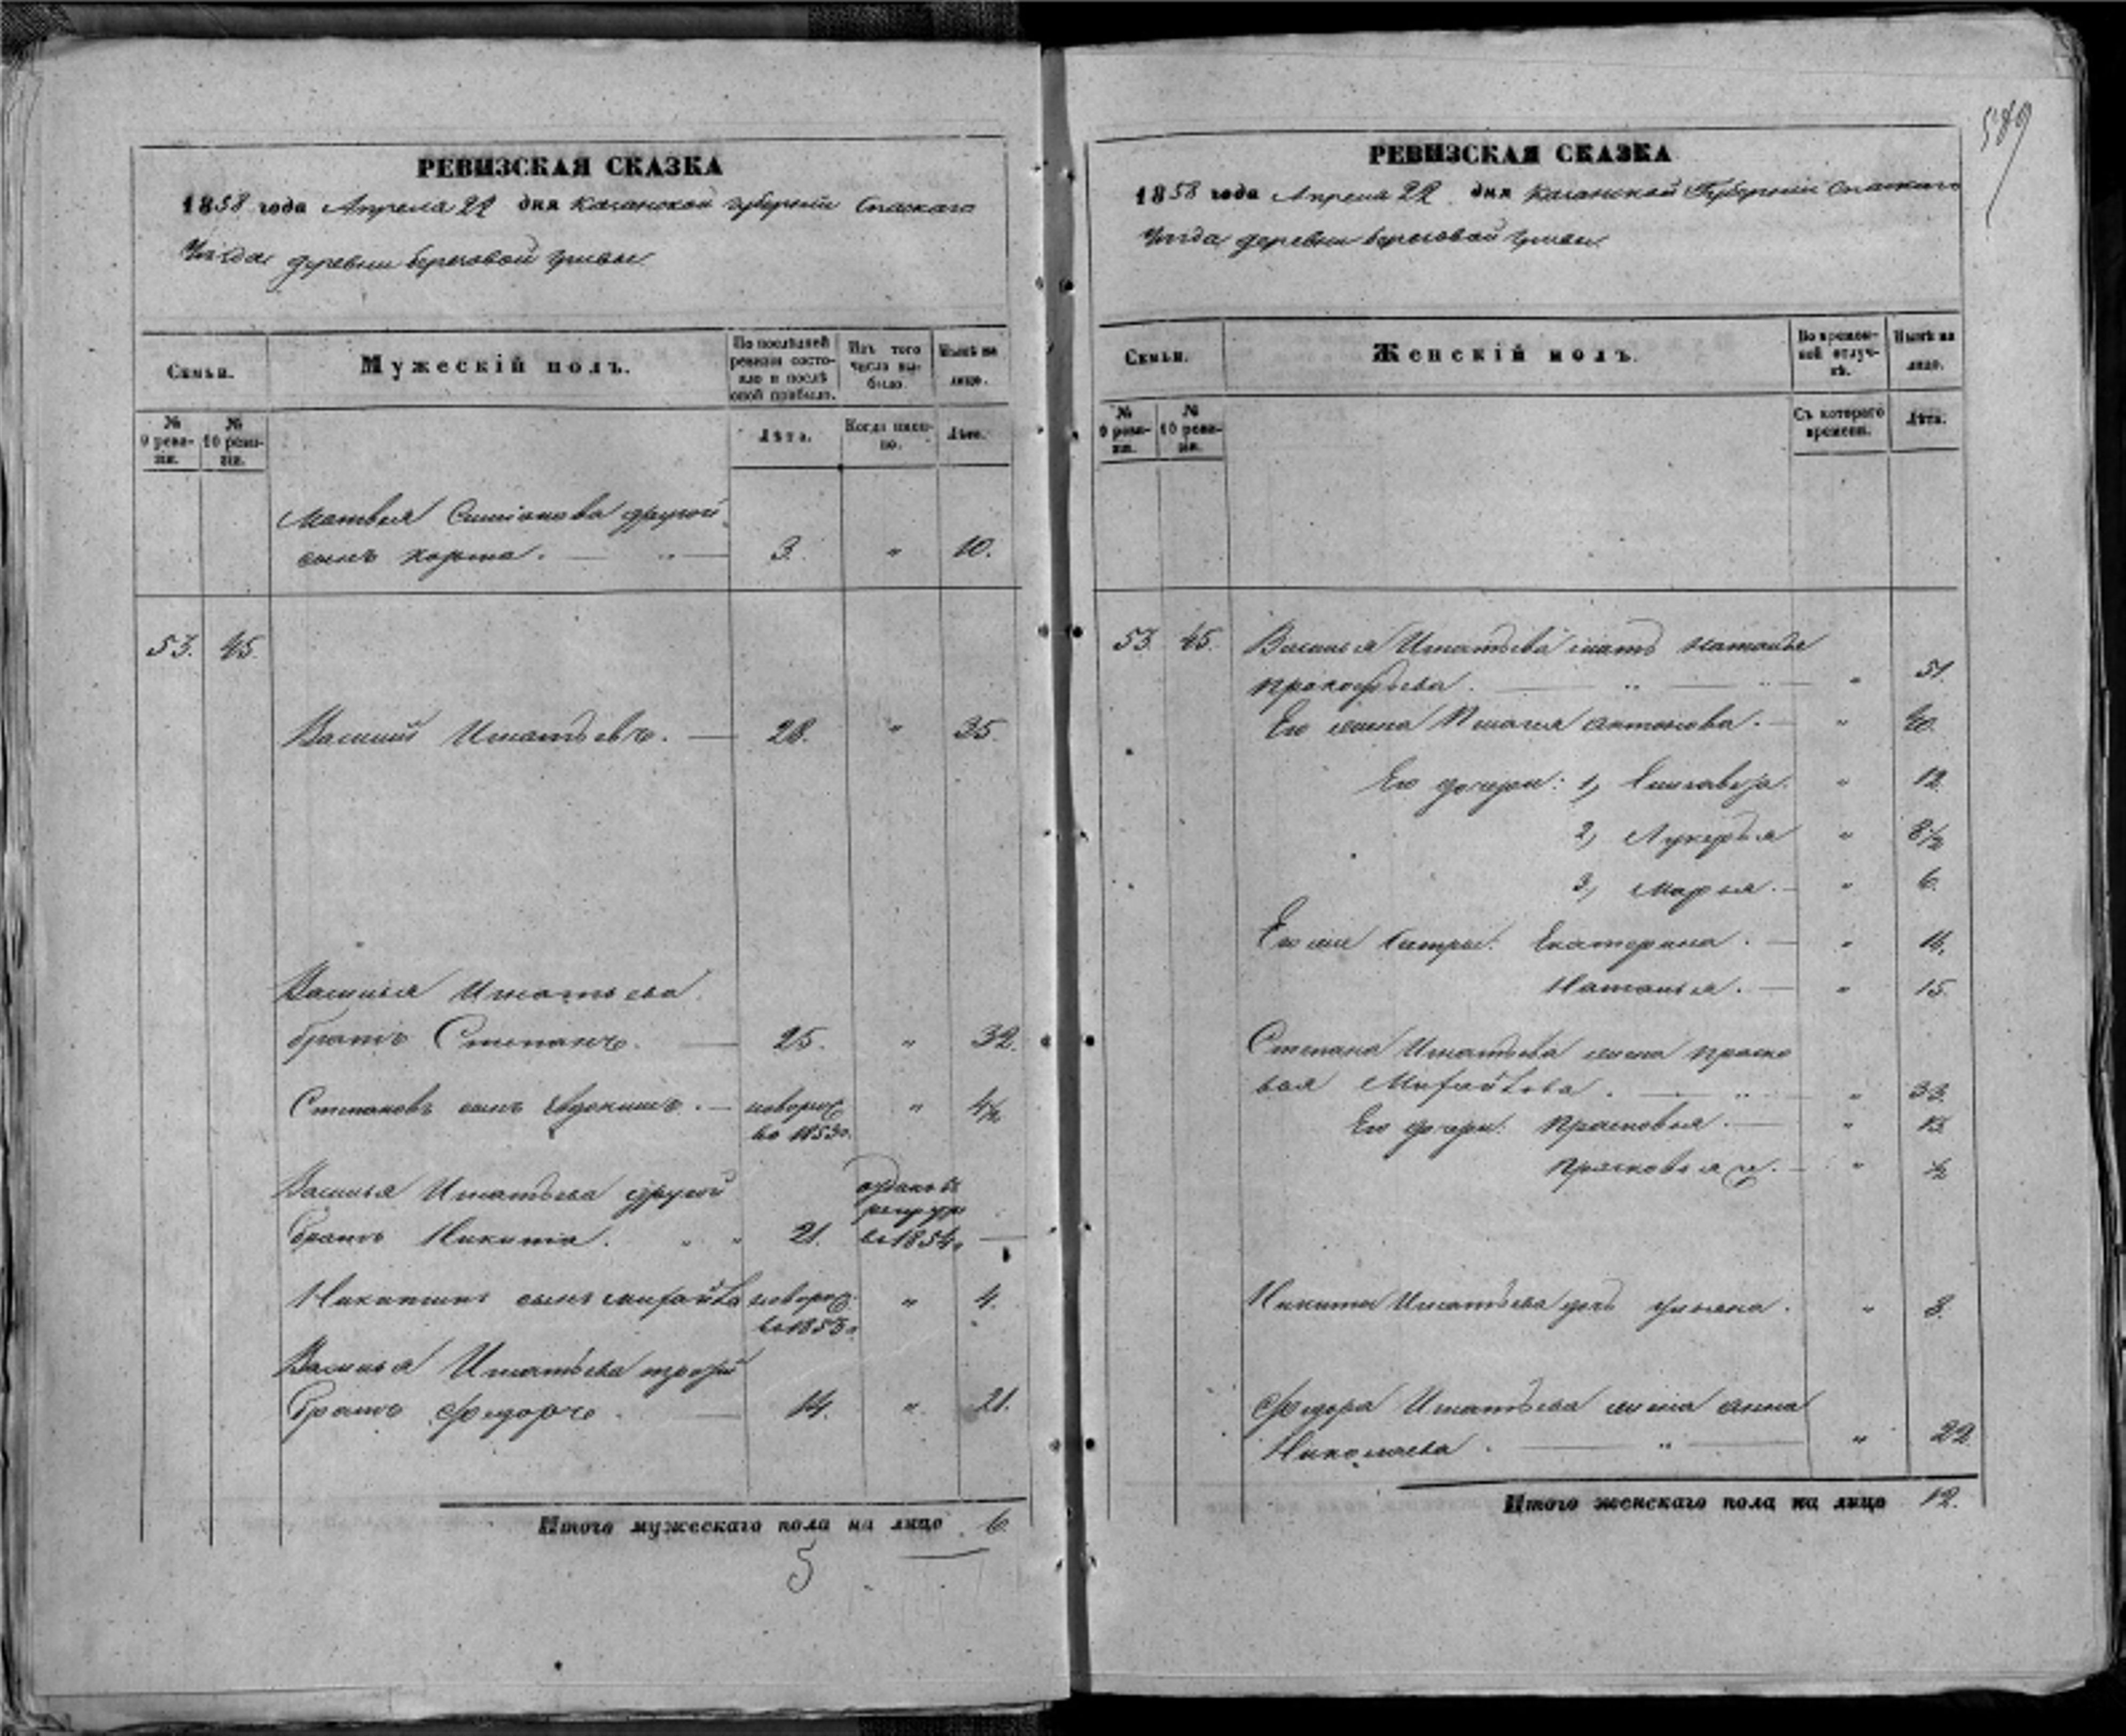 РЕВИЗСКАЯ СКАЗКА
1858 года Апреля 22 дня Казанской губернии Спаскаго
Уезда деревни береговой гривы
Семьи.
Мужескій полъ.
По последней
ревизіи состо-
яло и послѣ
оной прибыло.
Изъ того
числа вы-
было.
Нынѣ на
лицо.
№
9 реви-
зіи.
№
10 реви-
зіи.
Лѣта.
Когда имен-
но.
Лѣта.
Матвея Симионова другой
сынъ карпъ. 3. " 10.
53. 45.
Василий Игнатьевъ. 28. " 35.
Василья Игнатьева
братъ Степанъ. 25. " 32.
Степановъ сынъ новорож " 4½
во 1853г.
Василья Игнатьева другой отданъ в
рекруты
братъ Никита. " " 21. в 1854г.
Никитинъ сынъ михайла новорож. " 4.
Василья Игнатьева третий
братъ Федоръ. 14. " 21.
Итого мужескаго пола на лицо 6
5
589
РЕВИЗСКАЯ СКАЗКА
1858 года Апреля 22 дня Казанской Губернии Спаскаго
Уезда деревни береговой гривы
Семьи.
Женскій полъ.
Во времен-
ной отлуч-
кѣ.
Нынѣ на
лицо.
№
9 реви-
зіи.
№
10 реви-
зіи.
Съ котораго
времени.
Лѣта.
53. 45. Василья Игнатьева мать наталья
прокофьева. " 51.
Его жена Пелагея антонова. " 40.
Его дочери: 1, Елисавета. " 12.
2, Лукерья " 8½
3, Марья. " 6.
Его же сестры: Екатерина. "
Наталья. " 15.
Степана Игнатьева жена праско
вья Михайлова. " 33.
Его дочери: Прасковья. " 13.
Прасковья 2я. " ½
Никиты Игнатьева дочь ульяна. " 8.
Федора Игнатьева жена анна
Николаева. " 22.
Итого женскаго пола на лицо 12.